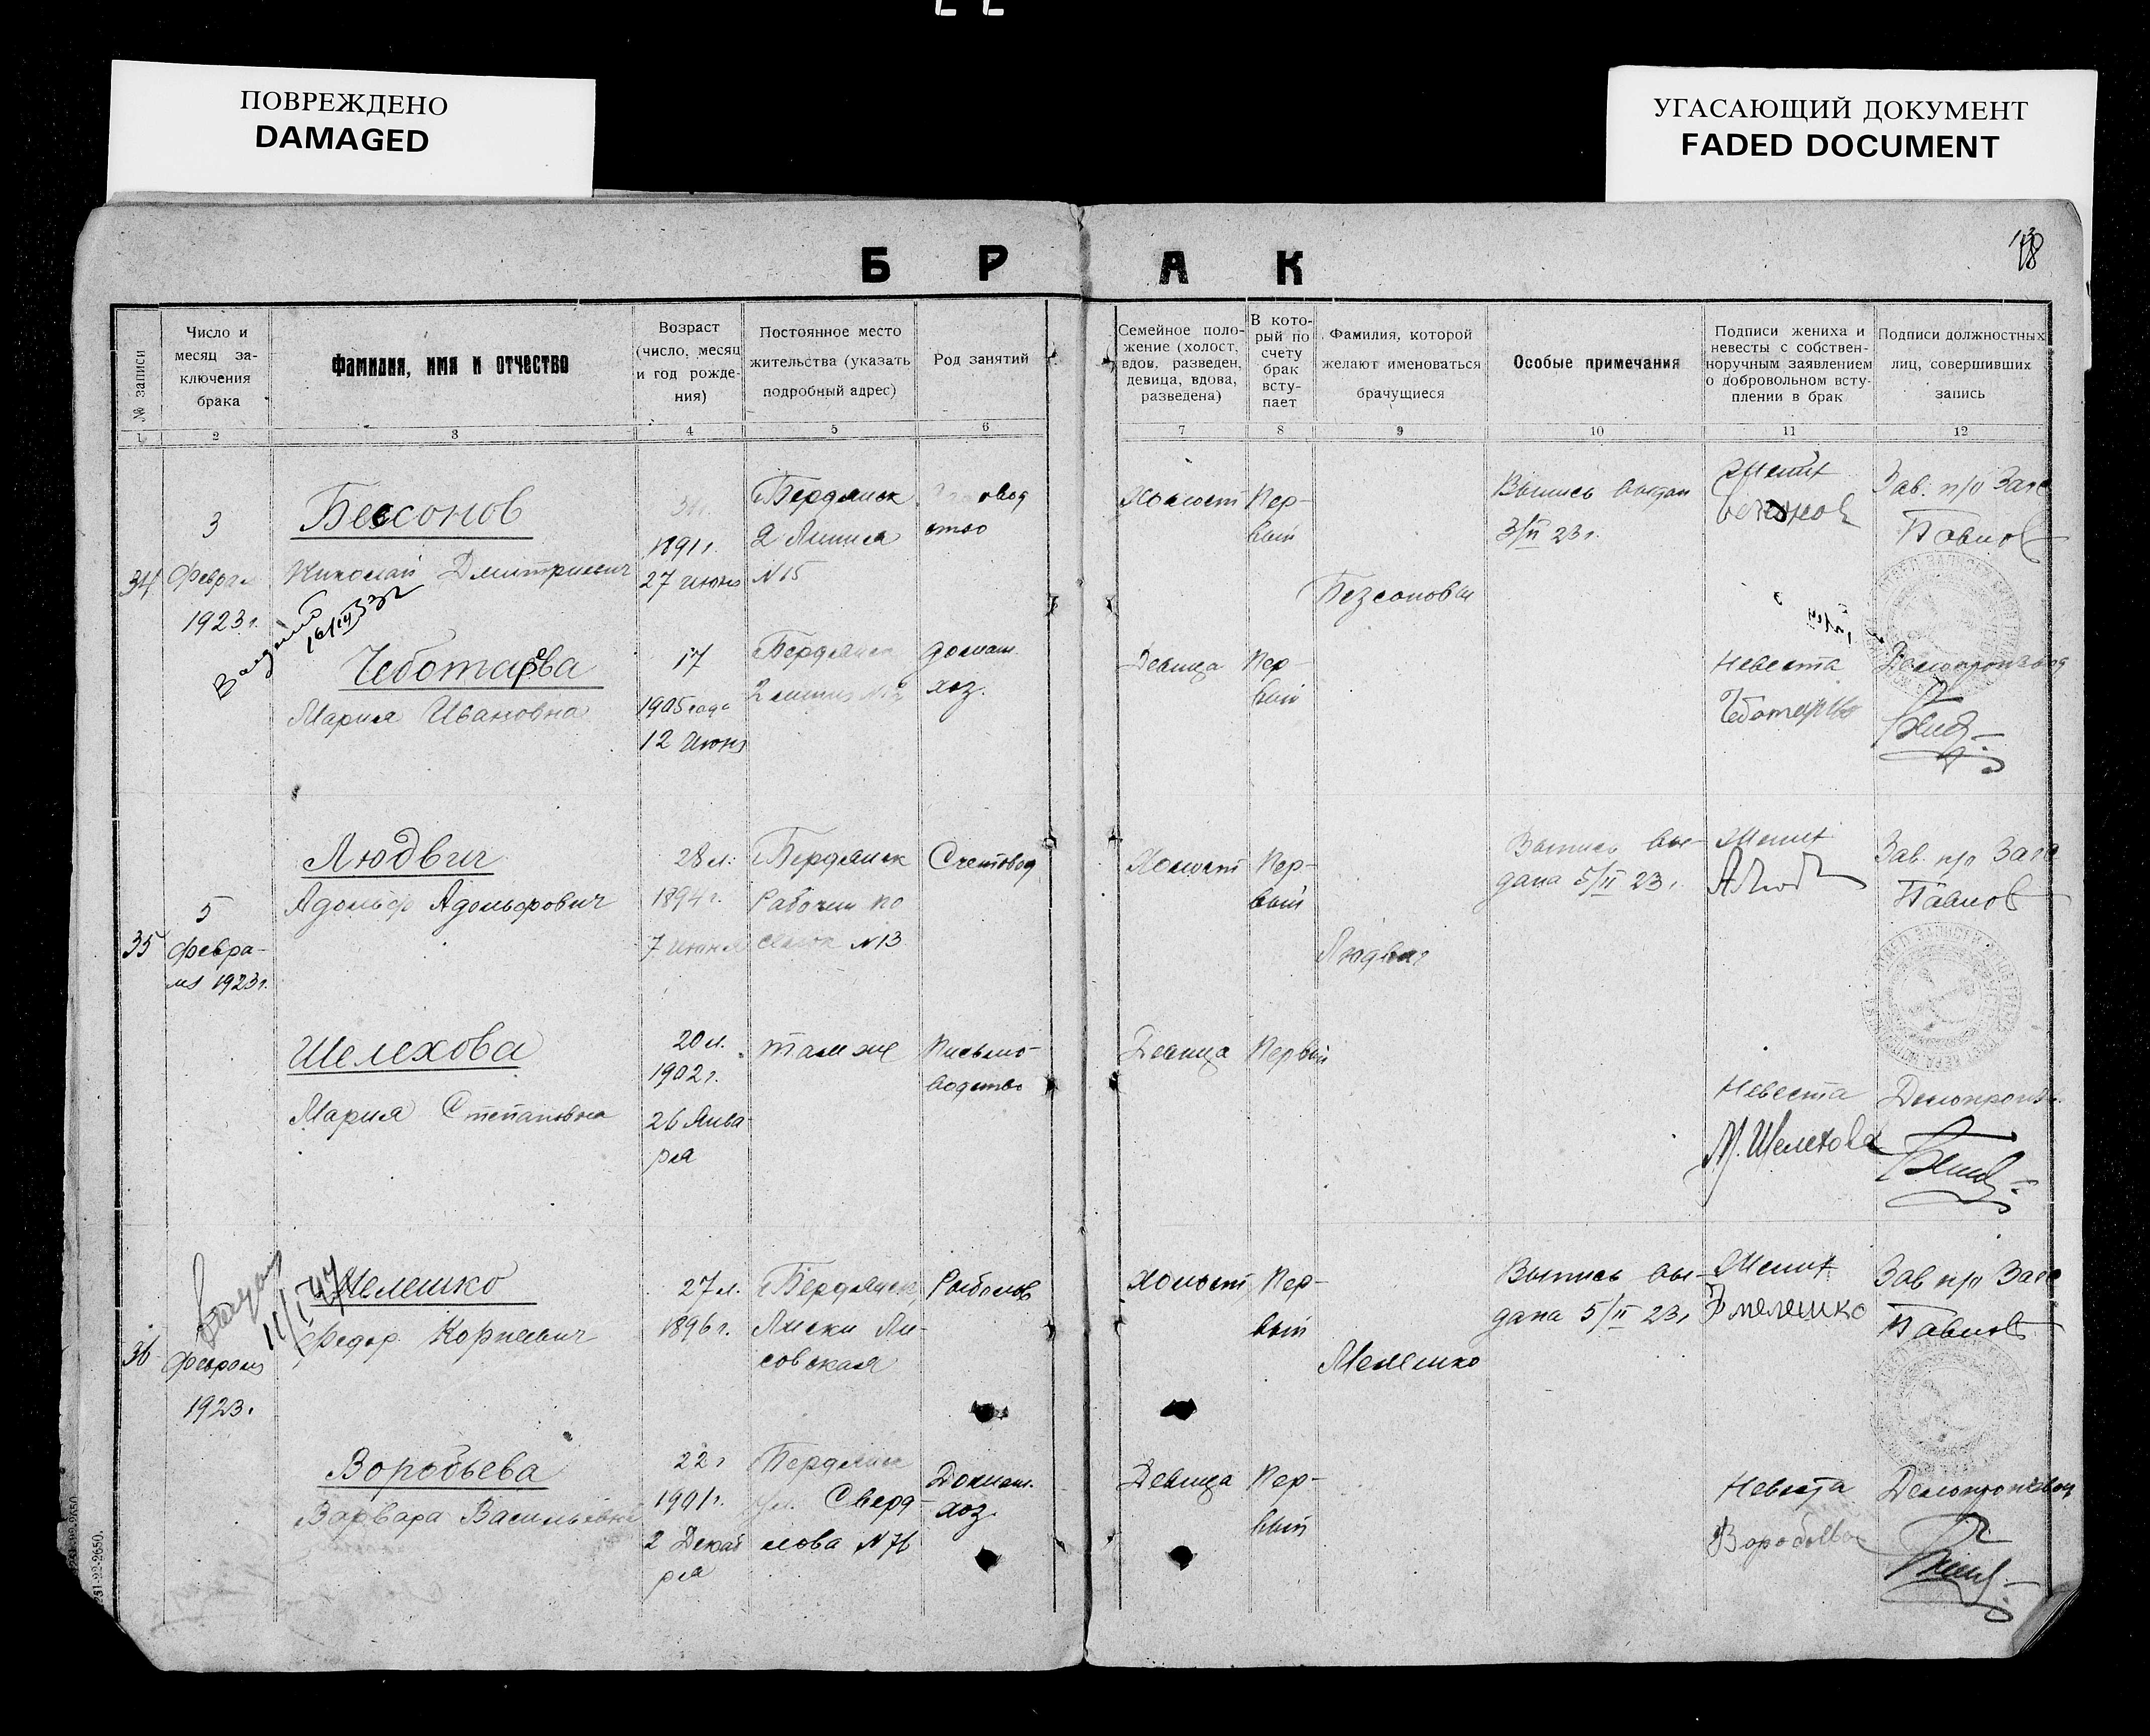 ПОВРЕЖДЕНО
DAMAGED
УГАСАЮЩИЙ ДОКУМЕНТ
FADED DOCUMENT
БРАК
№ записи
Число и
месяц за-
ключения
брака
Фамилия, имя и отчество
Возраст
(число, месяц
и год рожде-
ния)
Постоянное место
жительства (указать
подробный адрес)
Род занятий
Семейное поло-
жение (холост,
вдов, разведен,
девица, вдова,
разведена)
В кото-
рый по
счету
брак
всту-
пает
Фамилия, которой
желают именоваться
брачущиеся
Особые примечания
Подписи жениха и
невесты с собствен-
норучным заявлением
о добровольном всту-
плении в брак
Подписи должностных
лиц, совершивших
запись
1 2 3 4 5 6 7 8 9 10 11 12
34
3
Февраля
1923 г.
Бессонов
Николай Дмитриевич
31 г.
1891 г.
27 июня
Бердянск
2 Линия
N 15
Холост
Пер-
вый
Безсоновы
Выпись выдан
3/II 23 г.
Жених
Зав. п/о Загс
Павлов
Чеботарева
Мария Ивановна
17
1905 года
12 Июня
Бердянск
2 линия
домаш.
хоз.
Девица
Пер-
вый
Невеста
Чеботарева
Делопроизвод
35
5
Февра-
ля 1923 г.
Людвиг
Адольф Адольфович
28 л.
1894 г.
7 июня
Бердянск
Рабочий по
селок N 13
Счетовод
Холост
Пер-
вый
Людвиг
Выпись вы-
дана 5/II 23 г.
Жених
Зав. п/о Загс
Павлов
Шелехова
Мария Степановна
20 л.
1902 г.
26 Янва-
ря
там же
Письмо-
водство
Девица
Первый
Невеста
М. Шелехова
Делопроизв.
36
Февраля
1923 г.
11/I 47
Мелешко
Федор Корнеевич
27 л.
1896 г.
Бердянск,
Лиски Ли-
совская
Рыболов
Холост
Пер-
вый
Мелешко
Выпись вы-
дана 5/II 23 г.
Жених
Ф Мелешко
Зав п/о Загс
Павлов
Воробьева
Варвара Васильевна
22 г
1901 г.
2 Декаб
ря
Бердянск
ул. Сверд-
лова N 76
Домаш.
хоз.
Девица
Пер-
вый
Невеста
Воробьева
Делопроизвод